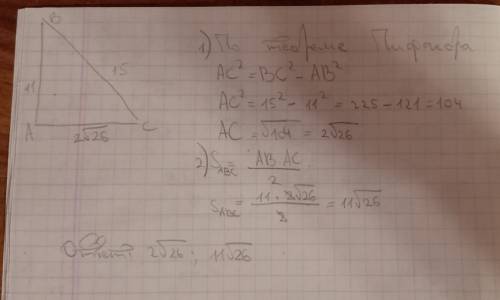 B
11
15
A
C
2√26
1) По теореме Пифагора
AC² = BC² - AB²
AC² = 15² - 11² = 225 - 121 = 104
AC = √104 = 2√26
2) S_ABC = AB·AC / 2
S_ABC = 11·2√26 / 2 = 11√26
Ответ: 2√26 ; 11√26